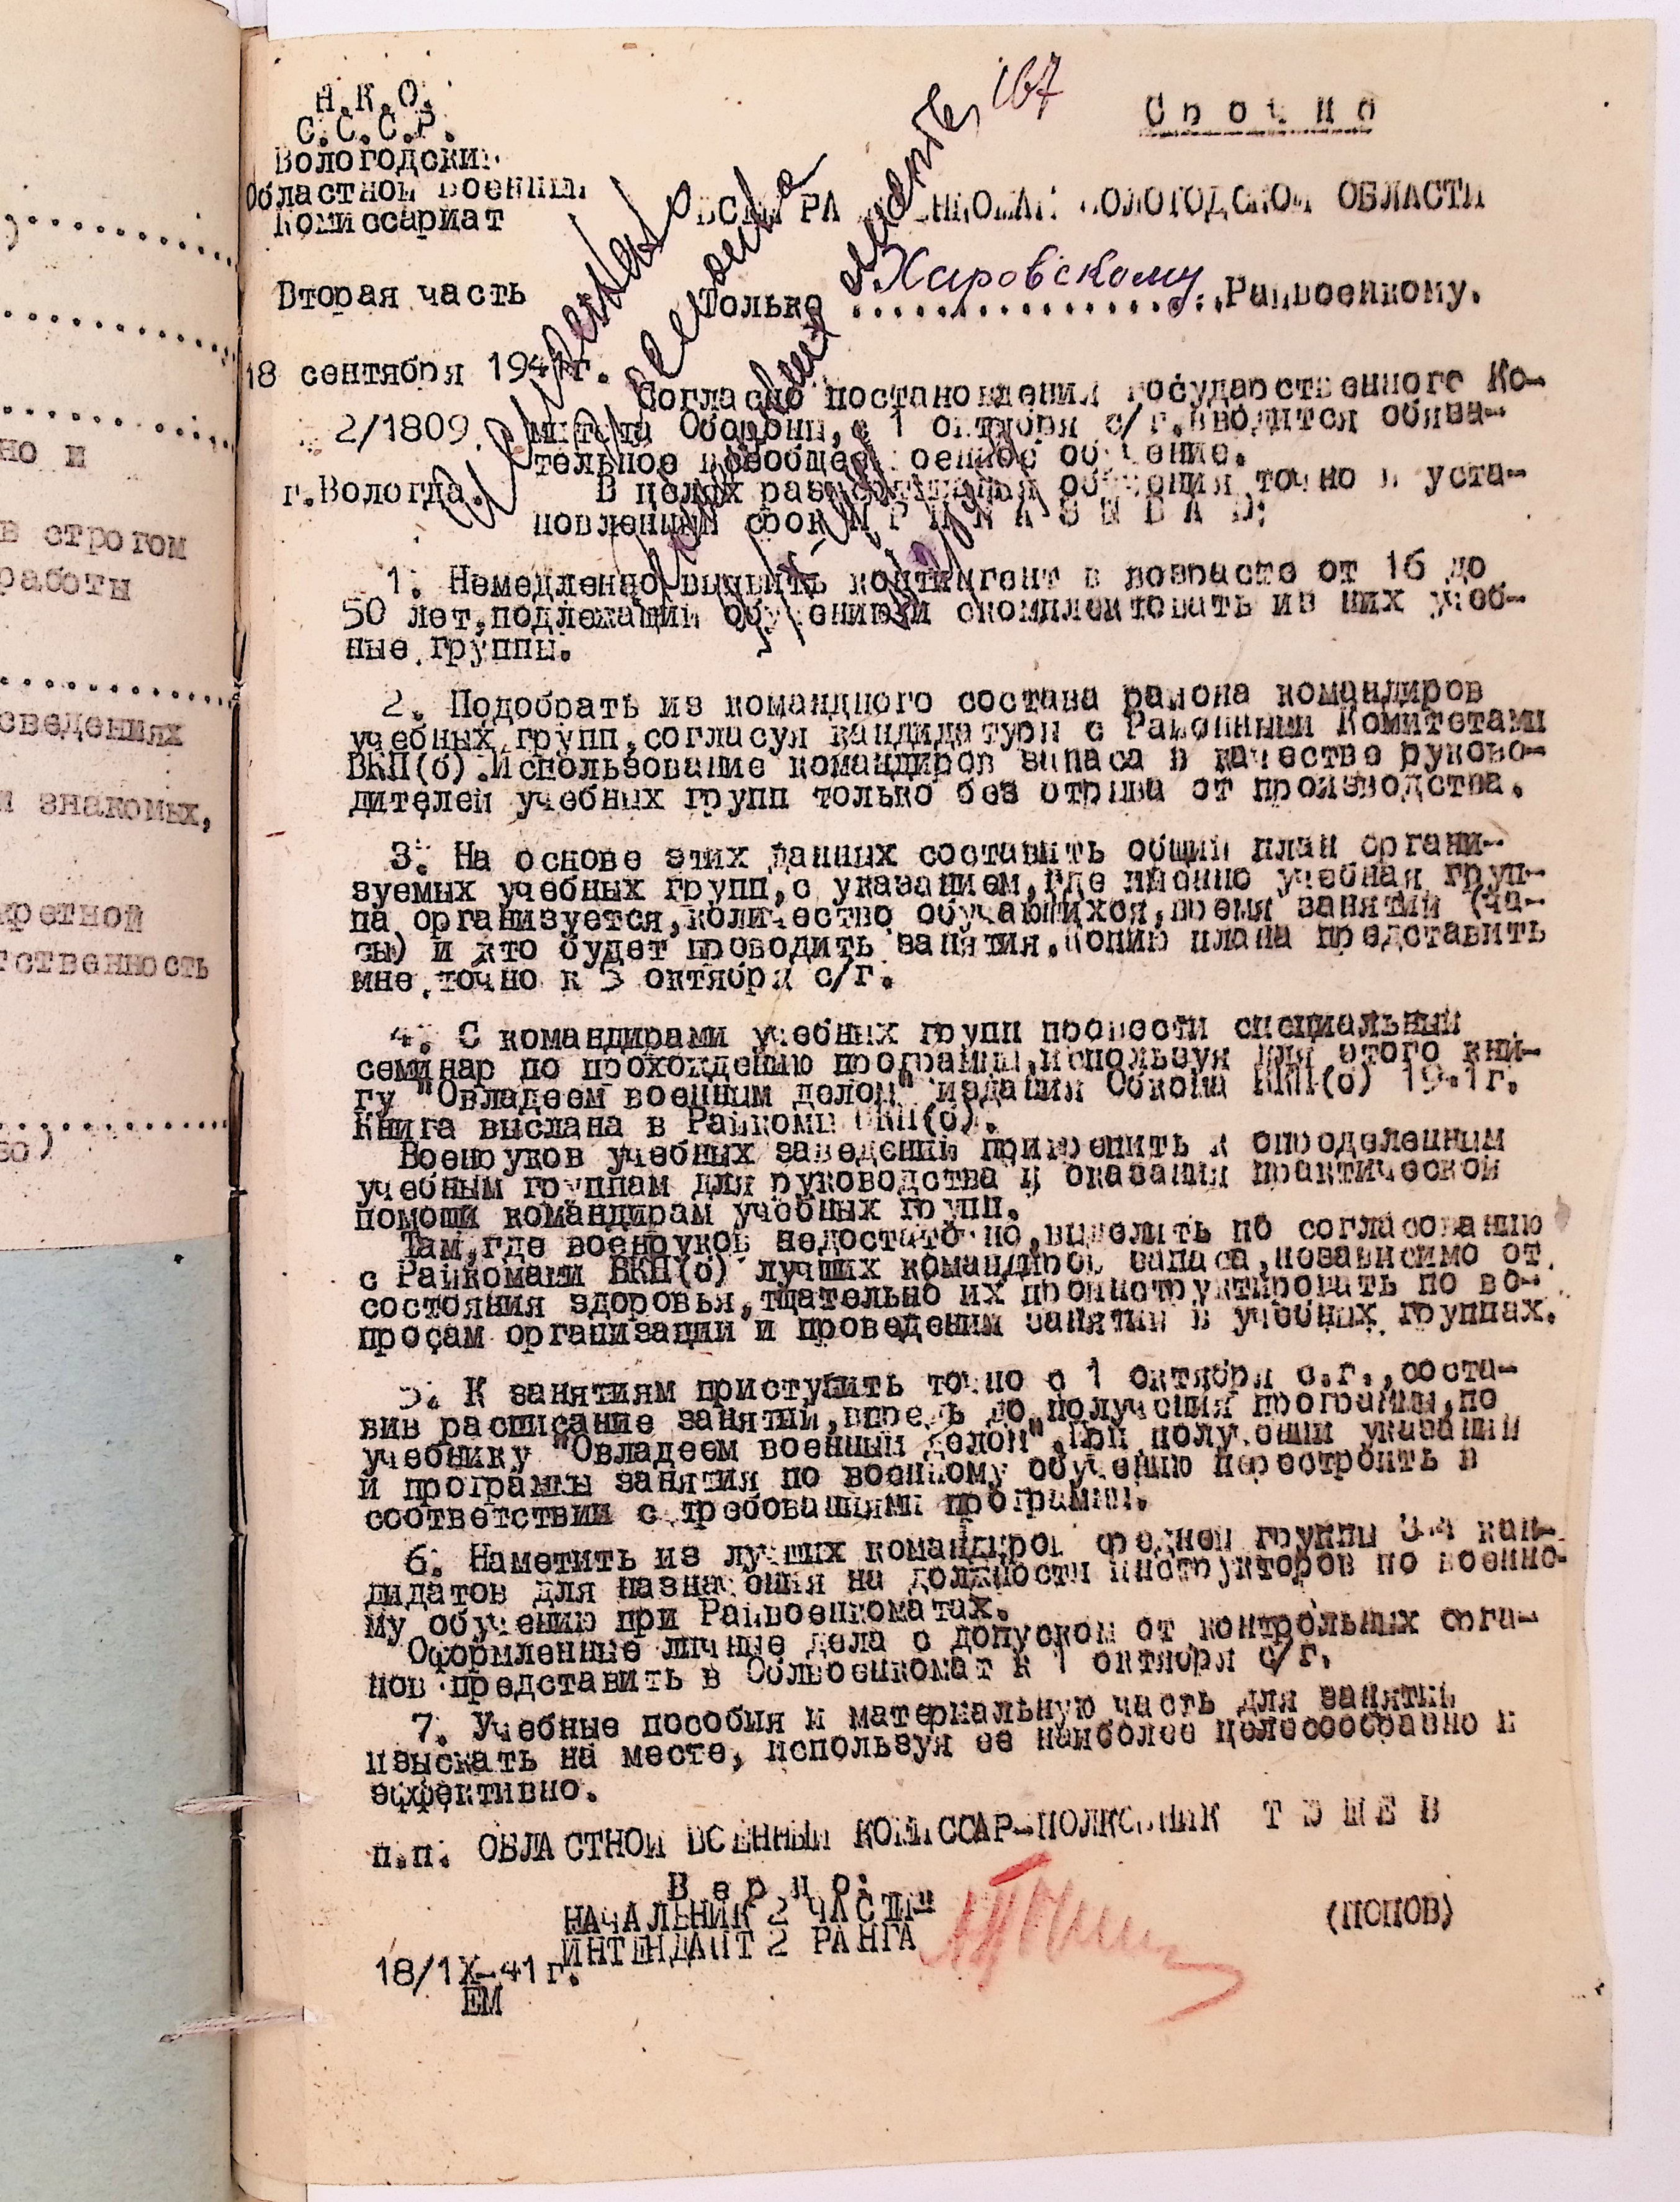 167
Срочно
Н.К.О.
С.С.С.Р.
Вологодский
Областной Военный
Комиссариат
ВСЕМ РАЙВОЕНКОМАМ ВОЛОГОДСКОЙ ОБЛАСТИ
Вторая часть
Только Харовскому Райвоенкому.
18 сентября 1941г.
2/1809
г.Вологда.
Согласно постановления Государственного Ко-
митета Обороны, с 1 октября с/г.вводится обяза-
тельное всеобщее военное обучение.
В целях развертывания обучения точно в уста-
новленный срок П Р И К А З Ы В А Ю:
1. Немедленно выявить контингент в возрасте от 16 до
50 лет,подлежащий обучению и скомплектовать из них учеб-
ные группы.
2. Подобрать из командного состава района командиров
учебных групп,согласуя кандидатуры с Районными Комитетами
ВКП(б).Использование командиров запаса в качестве руково-
дителей учебных групп только без отрыва от производства.
3. На основе этих данных составить общий план органи-
зуемых учебных групп,с указанием,где именно учебная груп-
па организуется,количество обучающихся,время занятий (ча-
сы) и кто будет проводить занятия.Копию плана представить
мне точно к 3 октября с/г.
4. С командирами учебных групп провести специальный
семинар по прохождению программы,используя для этого кни-
гу "Овладеем военным делом" издания Обкома ВКП(б) 1941г.
Книга выслана в Райкомы ВКП(б).
Военруков учебных заведений прикрепить к определенным
учебным группам для руководства и оказания практической
помощи командирам учебных групп.
Там,где военруков недостаточно,выделить по согласованию
с Райкомами ВКП(б) лучших командиров запаса,независимо от
состояния здоровья,тщательно их проинструктировать по во-
просам организации и проведения занятий в учебных группах.
5. К занятиям приступить точно с 1 октября с.г.,соста-
вив расписание занятий,впредь до получения программы,по
учебнику "Овладеем военным делом".При получении указаний
и программы занятия по военному обучению перестроить в
соответствии с требованиями программы.
6. Наметить из лучших командиров средней группы 3-4 кан-
дидатов для назначения на должности инструкторов по военно-
му обучению при Райвоенкоматах.
Оформленные личные дела с допуском от контрольных орга-
нов представить в Облвоенкомат к 1 октября с/г.
7. Учебные пособия и материальную часть для занятий
изыскать на месте, используя ее наиболее целесообразно и
эффективно.
п.п. ОБЛАСТНОЙ ВОЕННЫЙ КОМИССАР-ПОЛКОВНИК
В е р н о:
НАЧАЛЬНИК 2 ЧАСТИ
ИНТЕНДАНТ 2 РАНГА
(ПОПОВ)
18/IX-41г.
ЕМ
но и
в строгом
работы
сведениях
и знакомых,
тственность